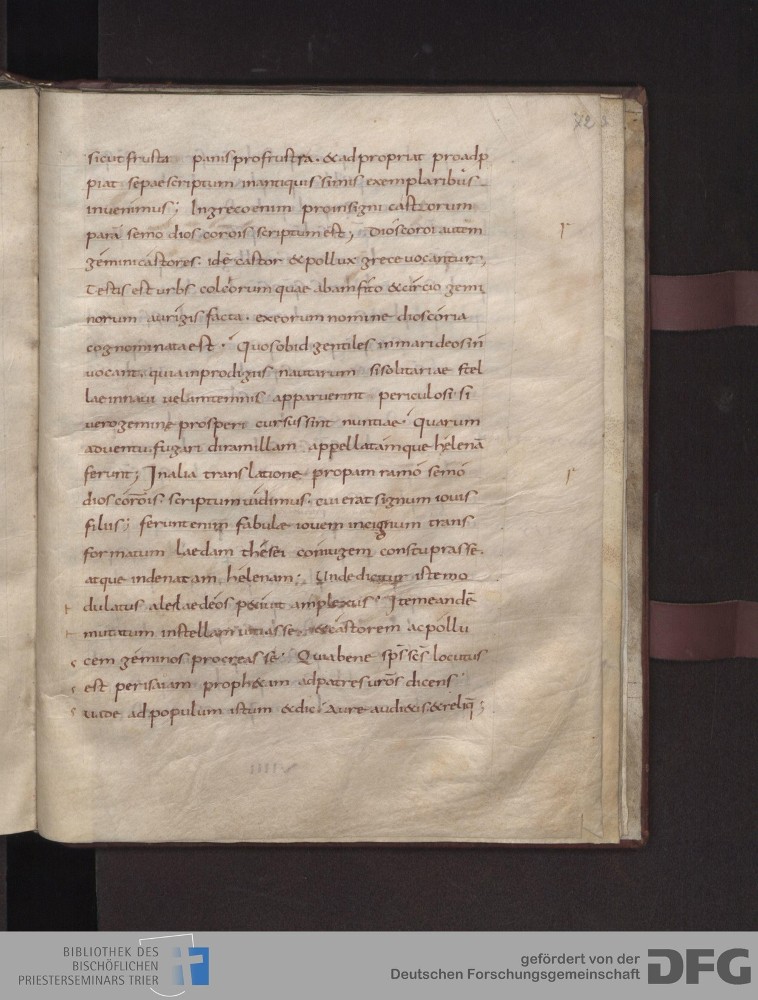 72
sicut frusta panis pro frustra. & ad propriat pro adp
piat sepae scriptum in antiquissimis exemplaribus
invenimus; In greco enim pro insigni castrorum
para semo dios corois scriptum est; Dioscoroi autem
gemini castores. ide castor & pollux grece vocantur;
Testis est urbs colcorum quae ab amfito & circio gemi
norum aurigis facta. ex eorum nomine dioscoria
cognominata est. Quos ob id gentiles in mari deos in
vocant, quia in prodigiis nautarum si solitariae stel
lae in navi vel antemnis apparuerint periculosi. si
vero gemine prosperi cursus sint nuntiae. Quarum
adventu fugari diram illam appellatamque helena
ferunt; In alia translatione pro pam ramo semo
dios corois. scriptum vidimus. cui erat signum iovis
filiis; ferunt enim fabulae iovem in cignum trans
formatum laedam thesei coniugem constuprasse.
atque inde natam helenam; Unde dicitur iste mo
dulatus ales laedeos petivit amplexus. Item eande
mutatum in stellam vitiasse & castorem ac pollu
cem geminos procreasse. Qui a bene sps scs locutus
est per isaiam prophetam ad patres uros dicens
vade ad populum istum & dic. Aure audietis & reliq;
BIBLIOTHEK DES
BISCHÖFLICHEN
PRIESTERSEMINARS TRIER
gefördert von der
Deutschen Forschungsgemeinschaft
DFG